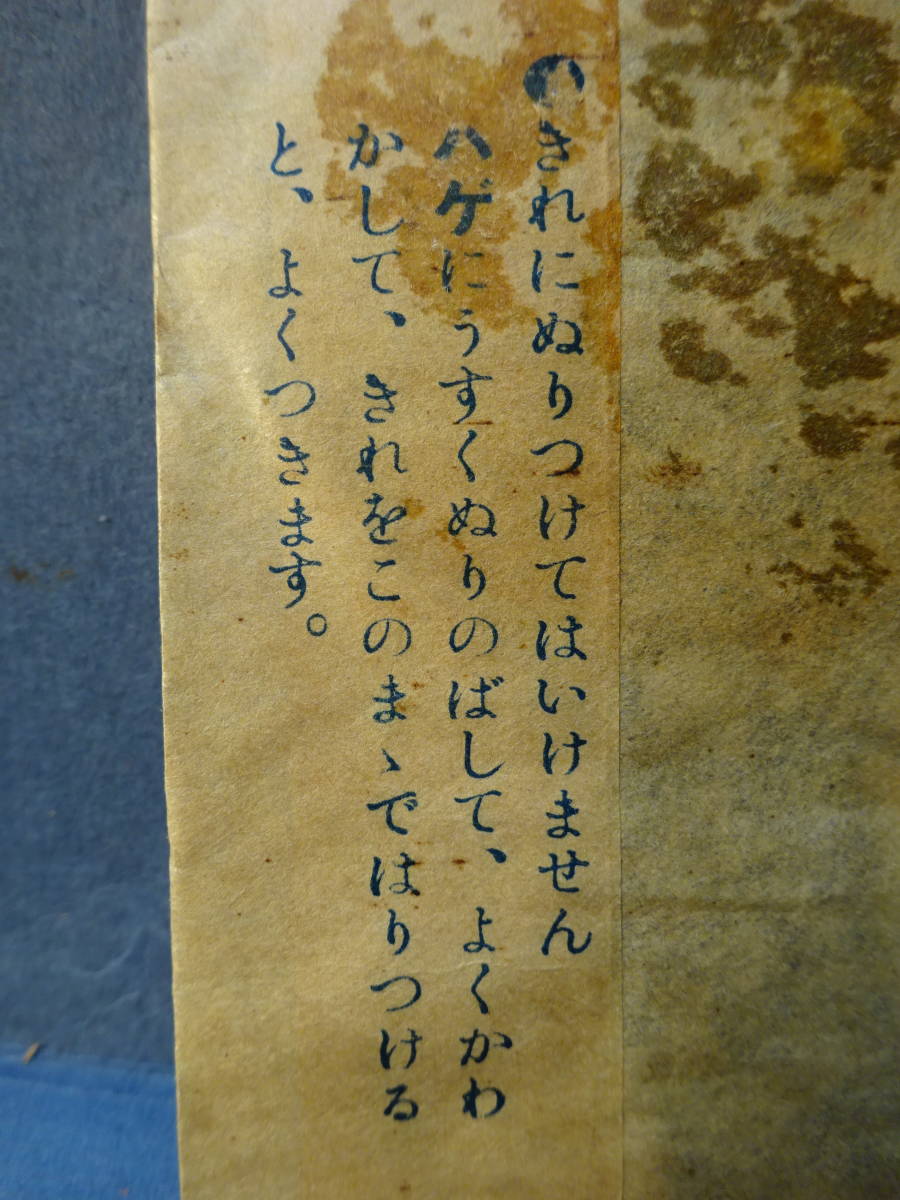 ●きれにぬりつけてはいけません
ハゲにうすくぬりのばして、よくかわ
かして、きれをこのまゝではりつける
と、よくつきます。